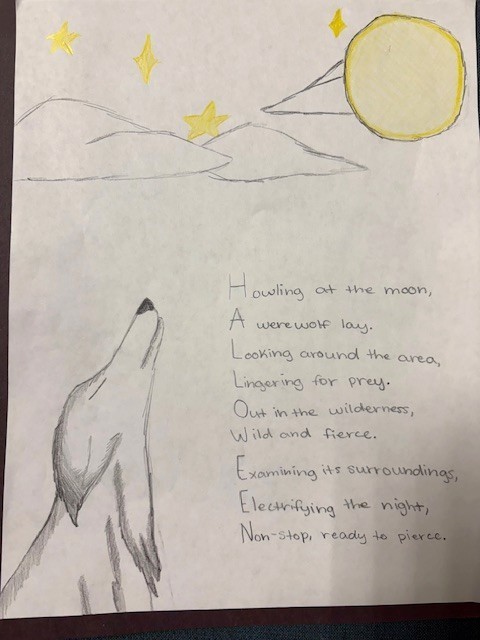 Howling at the moon,
A werewolf lay.
Looking around the area,
Lingering for prey.
Out in the wilderness,
Wild and fierce.
Examining its surroundings,
Electrifying the night,
Non-stop, ready to pierce.